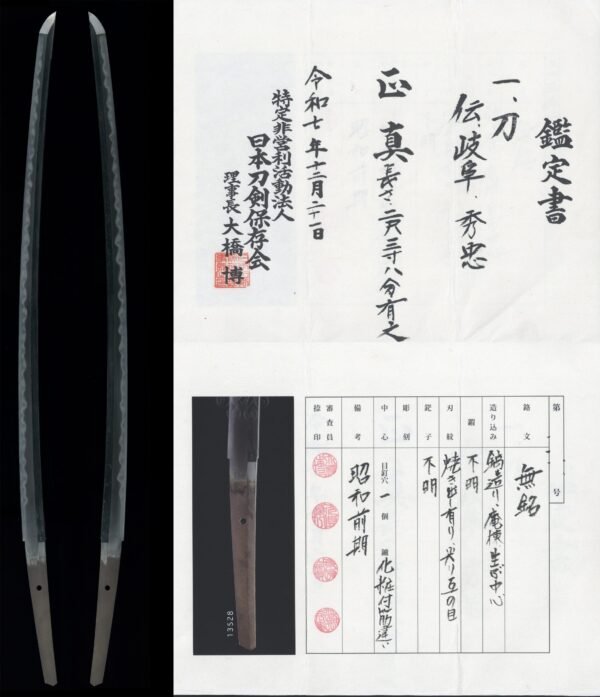 鑑定書
一、刀
伝、岐阜、秀忠
正真 長さ、二尺三寸八分有之
令和七年十二月二十一日
特定非営利活動法人
日本刀剣保存会
理事長 大橋 博
第 号
銘文 無銘
造り込み 鎬造り、庵棟、生ぶ中心
鍛 不明
刃紋 焼き出し有り、尖り互の目
鋩子 不明
彫刻
中心 目釘穴 一 個 鑢 化粧付筋違い
備考 昭和前期
審査員
捺印
13528